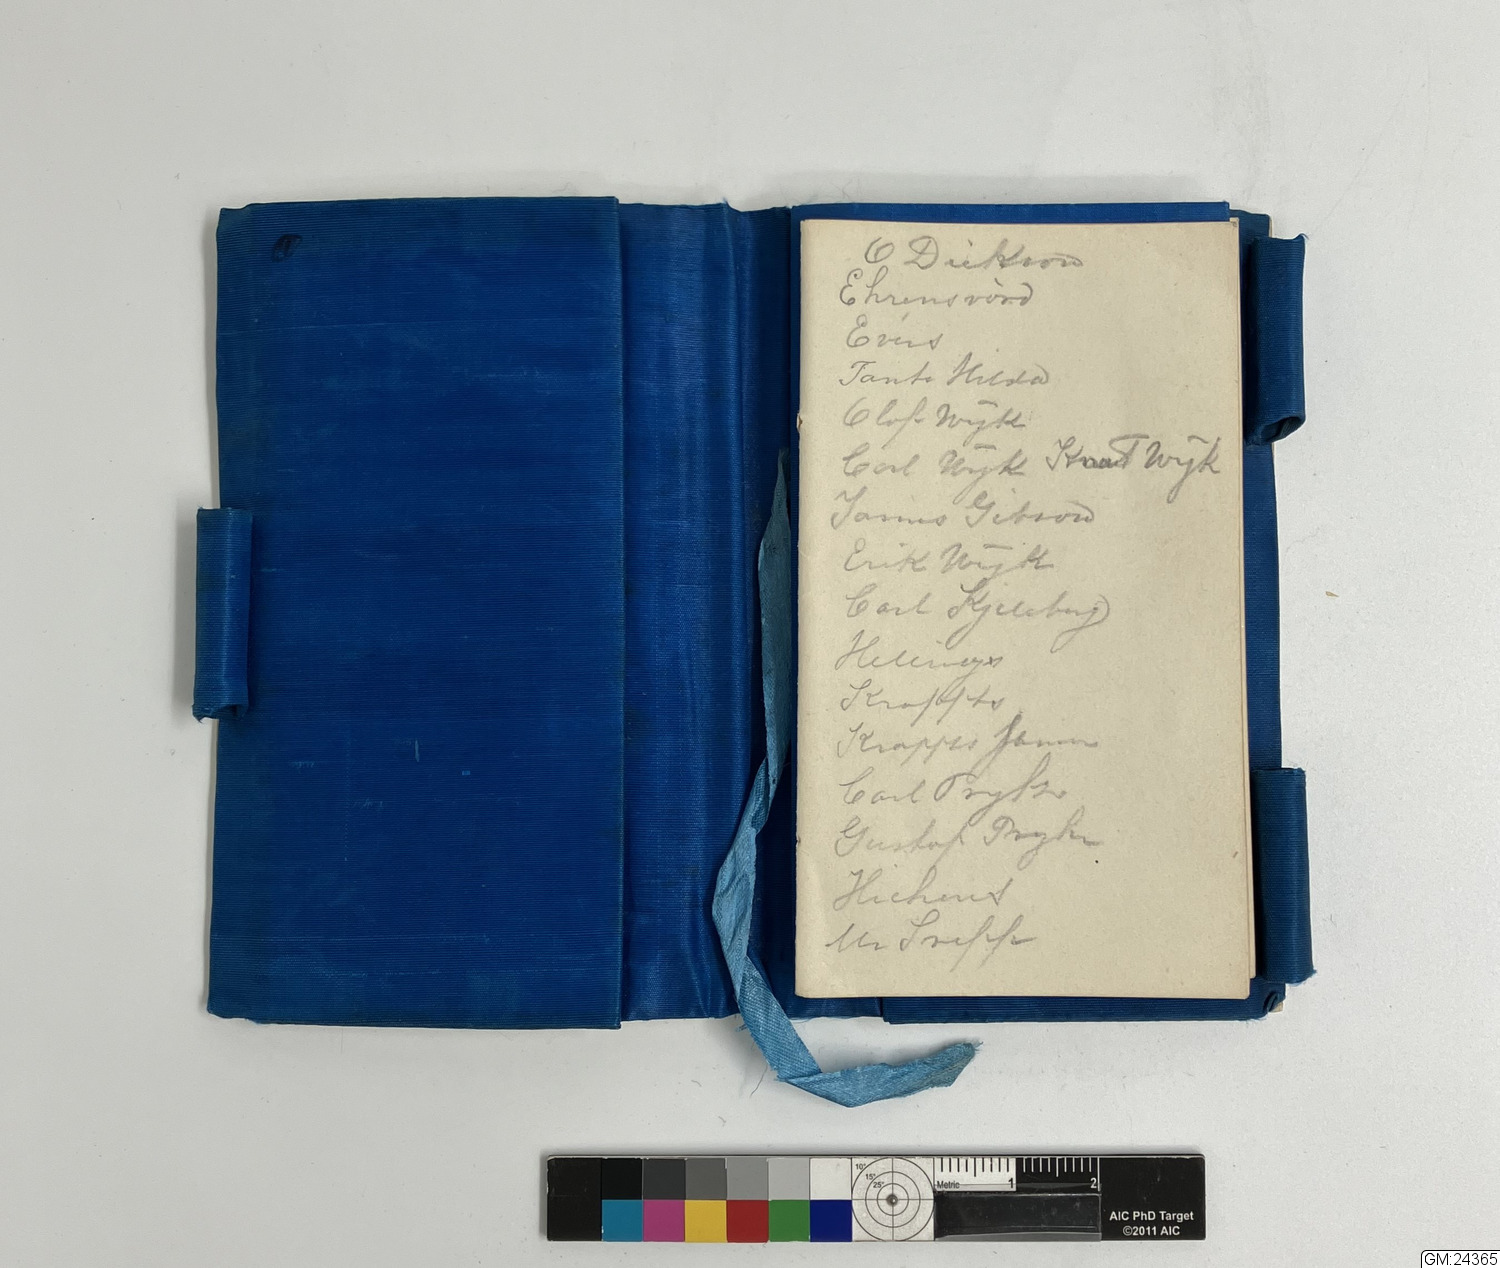 O Dickson
Ehrensvärd
Evers
Tante Hilda
Olof Wijk
Carl Wijk Knut Wijk
James Gibson
Erik Wijk
Carl Kjellberg
Kraffts
James
Carl Prytz
Gustaf Prytz
Hichens
Mr
10°
15°
25°
Metric 1 2
AIC PhD Target
©2011 AIC
GM:24365